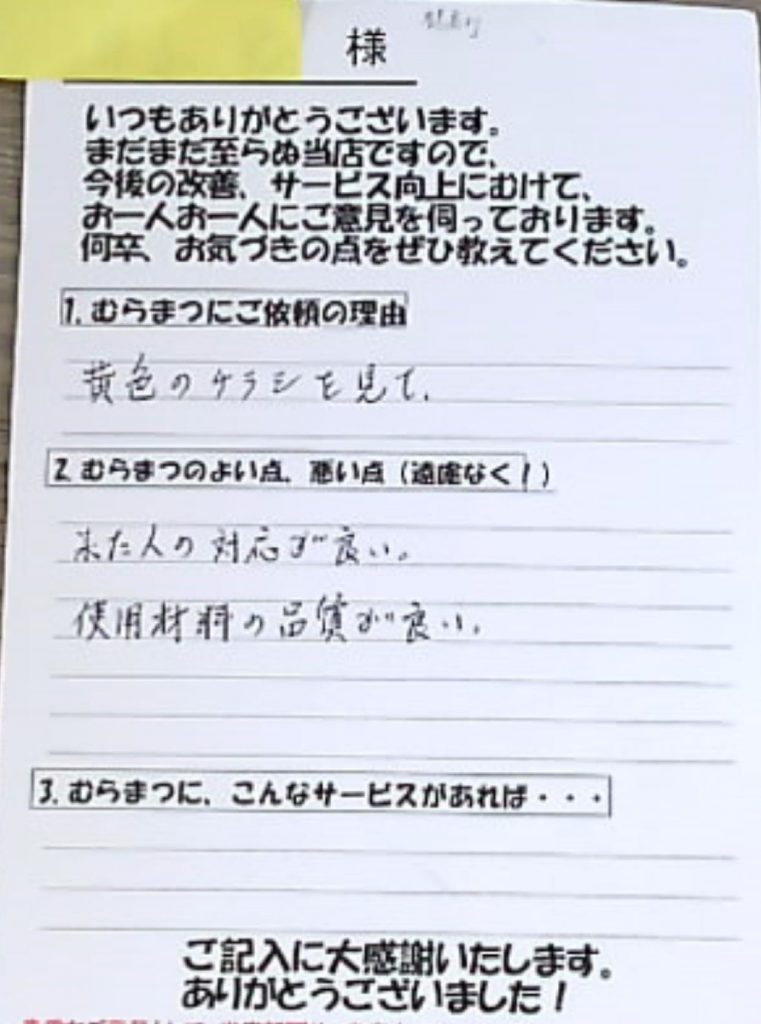 様
いつもありがとうございます。
まだまだ至らぬ当店ですので、
今後の改善、サービス向上にむけて、
お一人お一人にご意見を伺っております。
何卒、お気づきの点をぜひ教えてください。
1. むらまつにご依頼の理由
黄色のチラシを見て、
2. むらまつのよい点、悪い点（遠慮なく！）
来た人の対応が良い。
使用材料の品質が良い。
3. むらまつに、こんなサービスがあれば・・・
ご記入に大感謝いたします。
ありがとうございました！